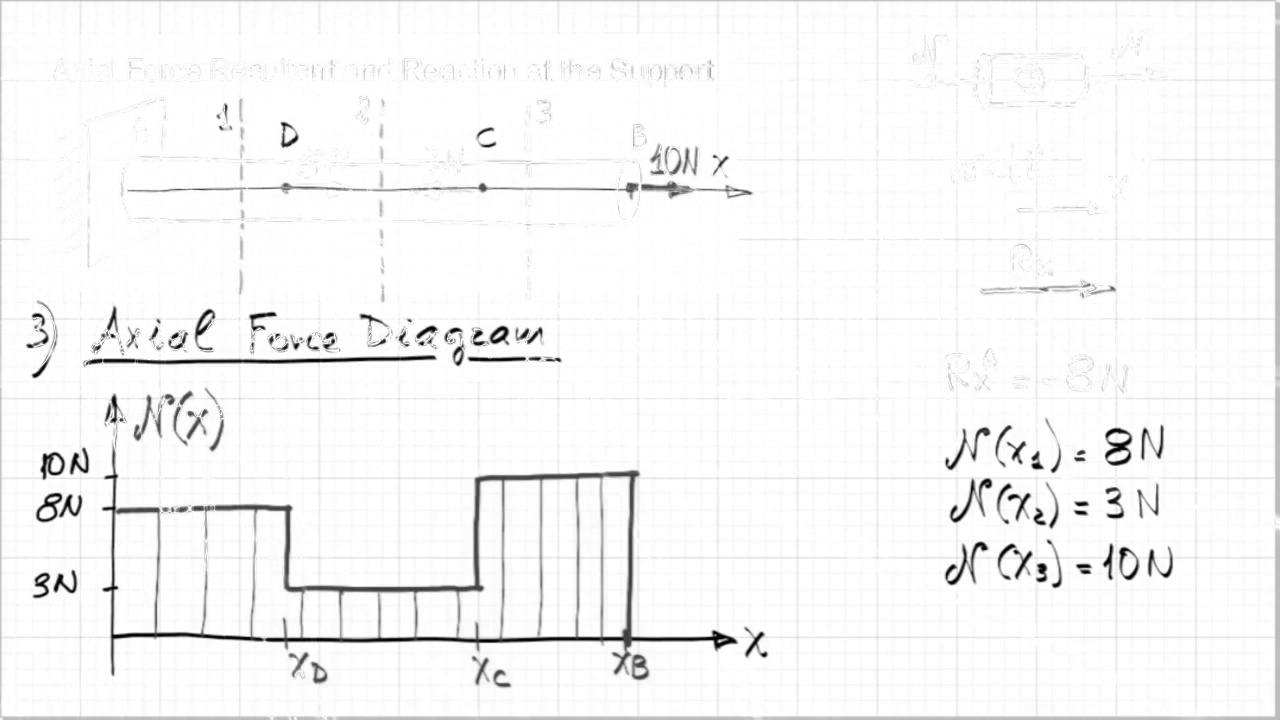 Axial Force Resultant and Reaction at the Support
1 2 3
A D C B
5N 7N 10N X
N N
X
Rx
3) Axial Force Diagram
N(x)
10N
8N
3N
x_D x_C x_B X
Rx^A = -8N
N(x₁) = 8N
N(x₂) = 3N
N(x₃) = 10N